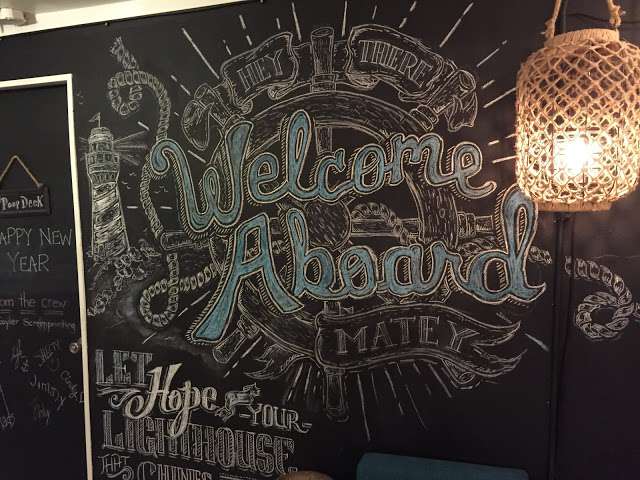 HEY THERE
Welcome
Aboard
MATEY
LET
Hope
YOUR
LIGHTHOUSE
THAT
SHINES
Poop Deck
APPY NEW
YEAR
om the crew